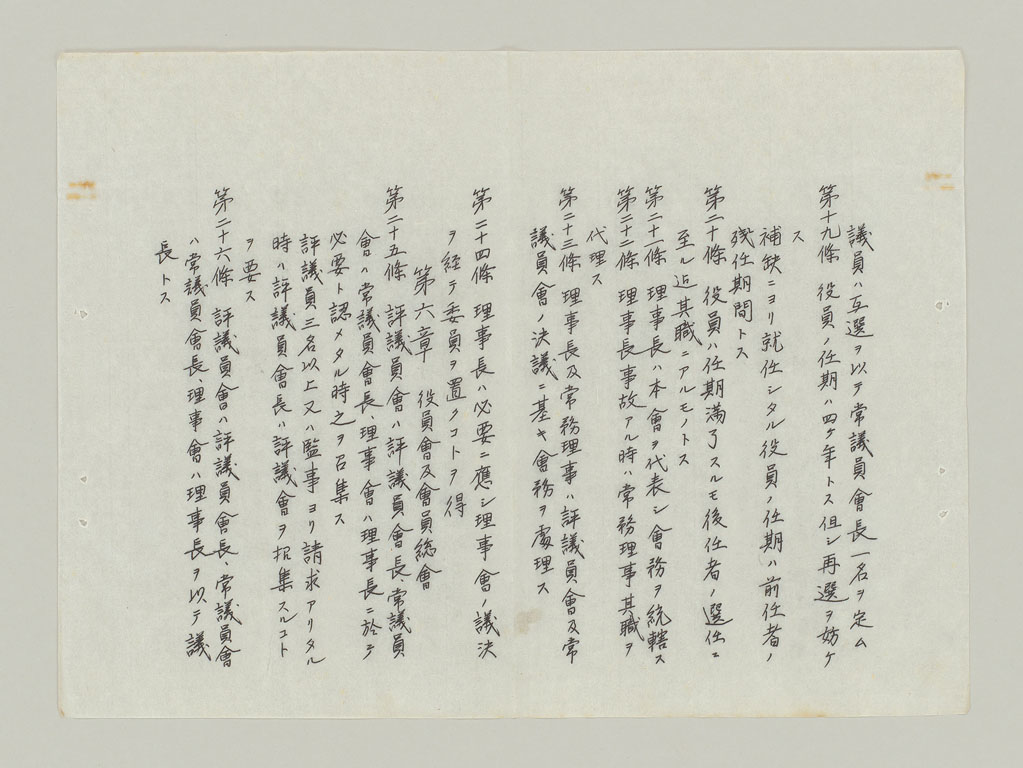 議員ハ互選ヲ以テ常議員會長一名ヲ定ム
第十九條 役員ノ任期ハ四ケ年トス但シ再選ヲ妨ケ
ス
補缺ニヨリ就任シタル役員ノ任期ハ前任者ノ
残任期間トス
第二十條 役員ハ任期満了スルモ後任者ノ選任ニ
至ル迠其職ニアルモノトス
第二十一條 理事長ハ本會ヲ代表シ會務ヲ統轄ス
第二十二條 理事長事故アル時ハ常務理事其職ヲ
代理ス
第二十三條 理事長及常務理事ハ評議員會及常
議員會ノ決議ニ基キ會務ヲ處理ス
第二十四條 理事長ハ必要ニ應シ理事會ノ議決
ヲ経テ委員ヲ置クコトヲ得
第六章 役員會及會員総會
第二十五條 評議員會ハ評議員會長、常議員
會ハ常議員會長、理事會ハ理事長ニ於テ
必要ト認メタル時之ヲ召集ス
評議員三名以上又ハ監事ヨリ請求アリタル
時ハ評議員會長ハ評議會ヲ招集スルコト
ヲ要ス
第二十六條 評議員會ハ評議員會長、常議員會
ハ常議員會長、理事會ハ理事長ヲ以テ議
長トス